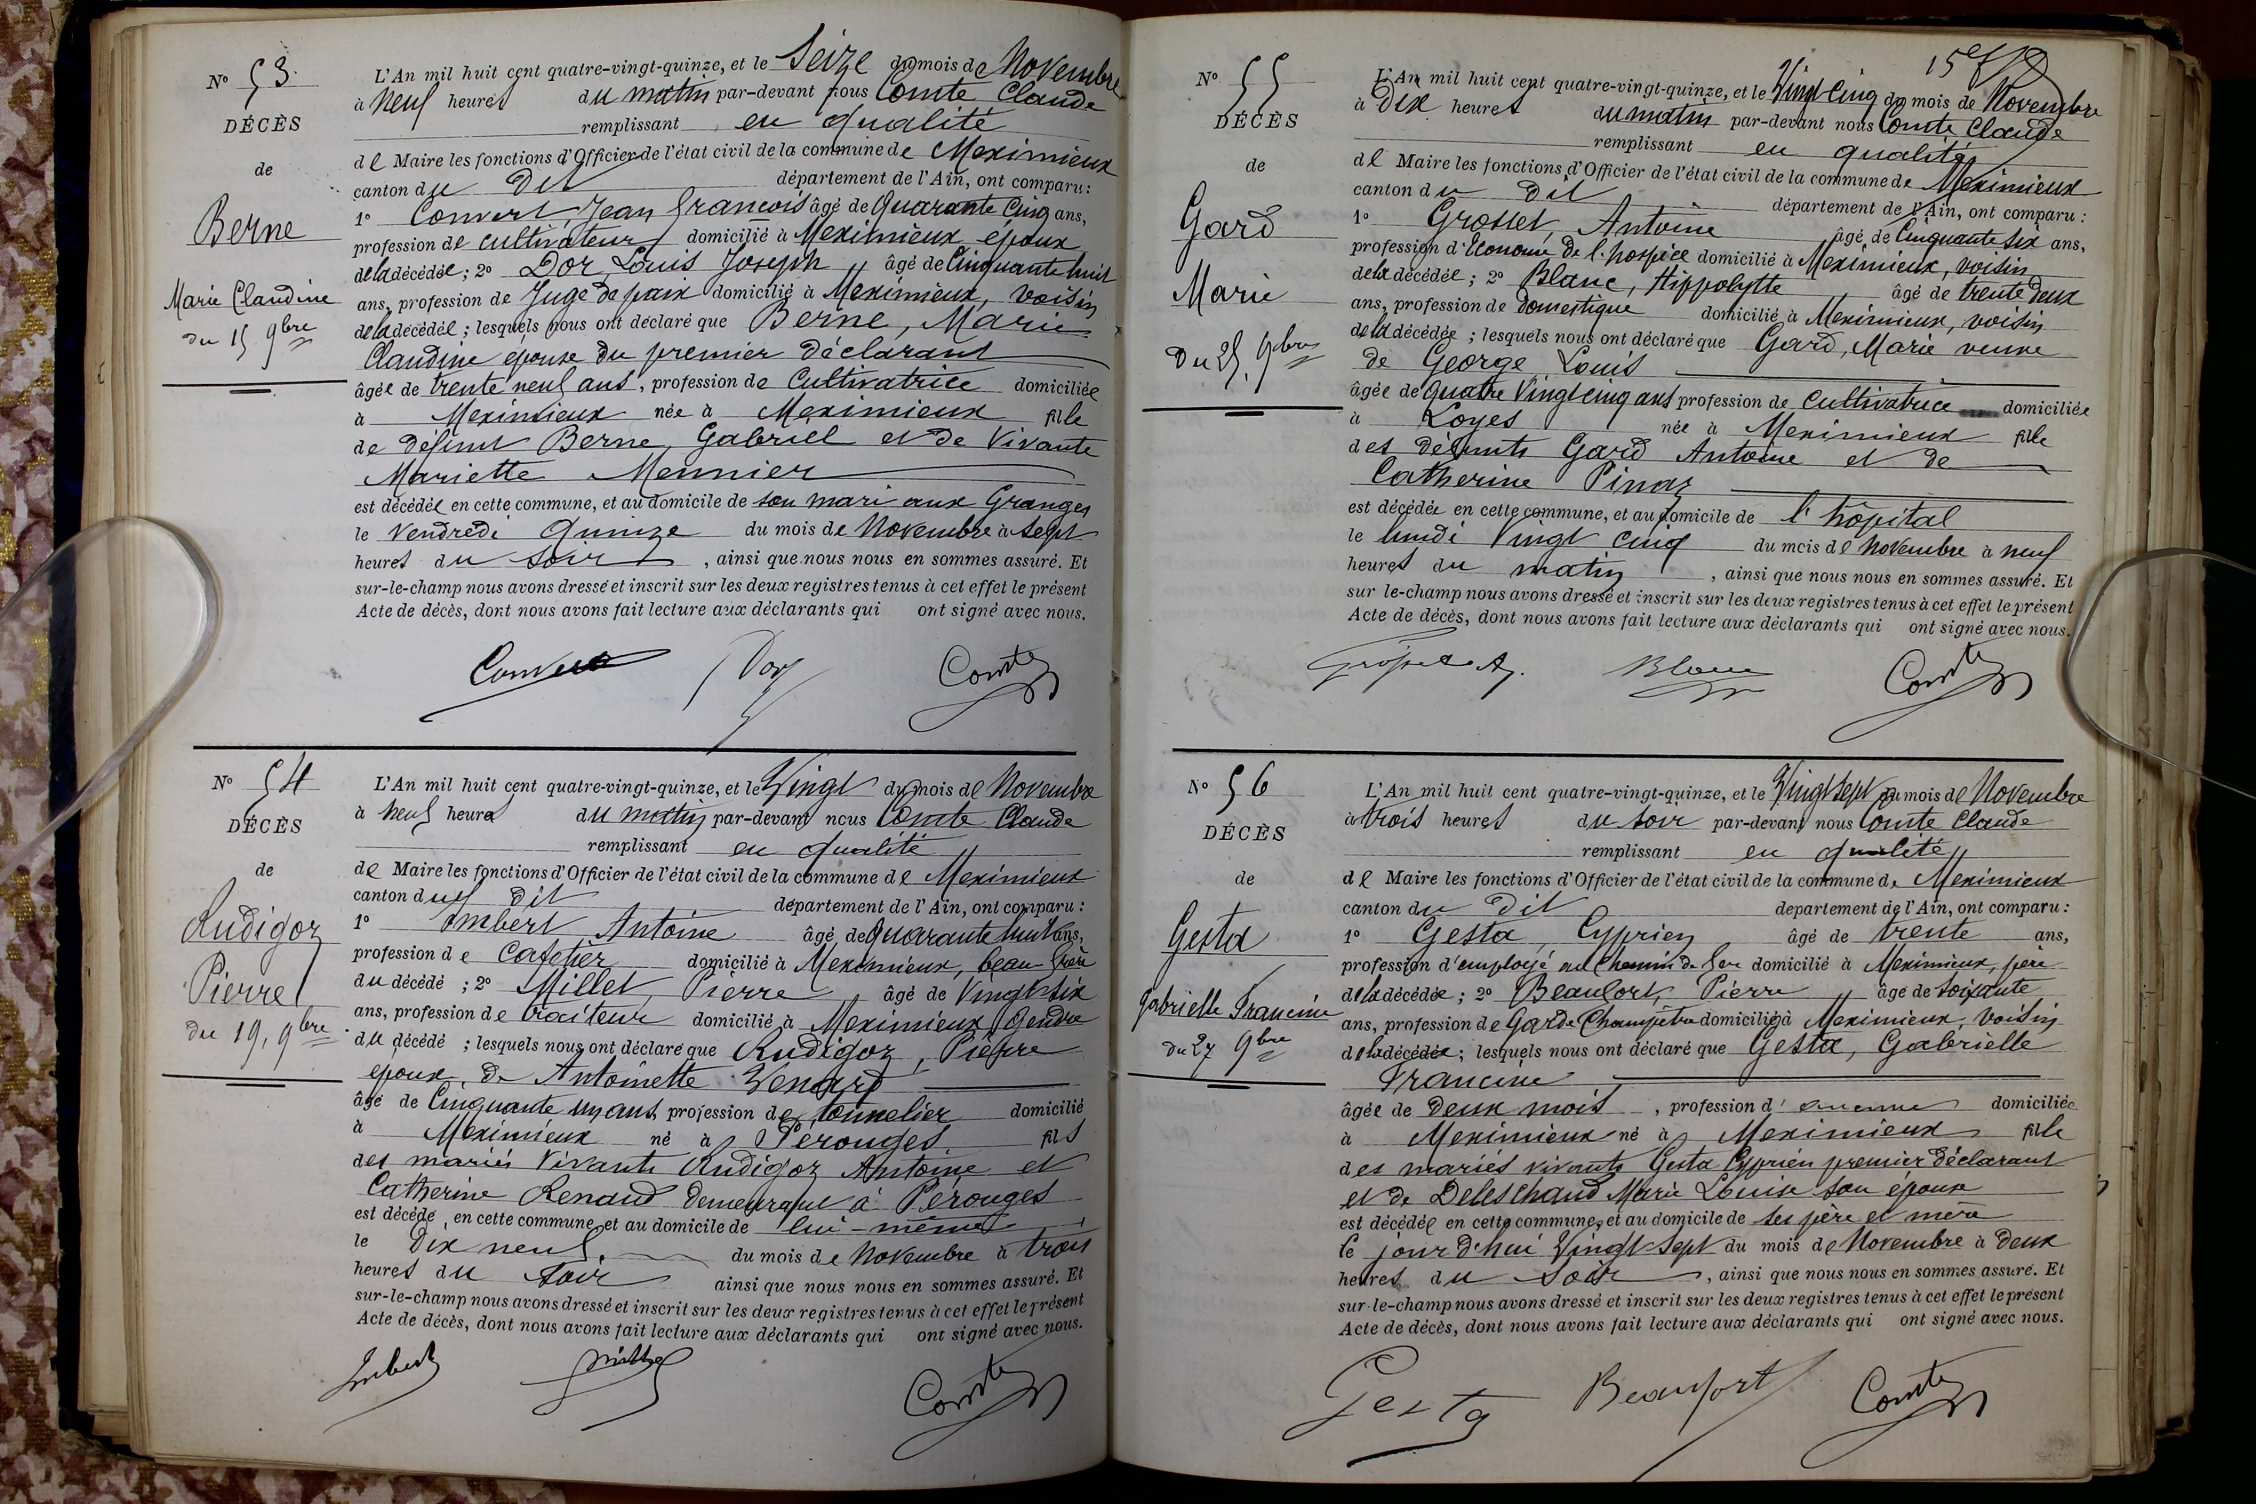 N° 53
DÉCÈS
de
Berne
Marie Claudine
du 15 9bre
L'An mil huit cent quatre-vingt-quinze, et le Seize du mois de Novembre
à neuf heures du matin par-devant nous Comte Claude
remplissant en qualité
de Maire les fonctions d'Officier de l'état civil de la commune de Meximieux
canton du dit département de l'Ain, ont comparu :
1° Convert, Jean François âgé de Quarante Cinq ans,
profession de cultivateur domicilié à Meximieux époux
de la décédée ; 2° Dor, Louis Joseph âgé de Cinquante huit
ans, profession de Juge de paix domicilié à Meximieux, voisin
de la décédée ; lesquels nous ont déclaré que Berne, Marie
Claudine épouse du premier déclarant
âgée de trente neuf ans, profession de Cultivatrice domiciliée
à Meximieux née à Meximieux fille
de défunt Berne Gabriel et de Vivante
Mariette Meunier
est décédée en cette commune, et au domicile de son mari aux Granges
le Vendredi Quinze du mois de Novembre à sept
heures du soir, ainsi que nous nous en sommes assuré. Et
sur-le-champ nous avons dressé et inscrit sur les deux registres tenus à cet effet le présent
Acte de décès, dont nous avons fait lecture aux déclarants qui ont signé avec nous.
Convert Dor Comte
N° 54
DÉCÈS
de
Rudigoz
Pierre
du 19, 9bre
L'An mil huit cent quatre-vingt-quinze, et le Vingt du mois de Novembre
à neuf heures du matin par-devant nous Comte Claude
remplissant en qualité
de Maire les fonctions d'Officier de l'état civil de la commune de Meximieux
canton du dit département de l'Ain, ont comparu :
1° Imbert Antoine âgé de Quarante huit ans,
profession de Cafetier domicilié à Meximieux, beau-frère
du décédé ; 2° Millet, Pierre âgé de Vingt six
ans, profession de traiteur domicilié à Meximieux, gendre
du décédé ; lesquels nous ont déclaré que Rudigoz, Pierre
époux de Antoinette Venard
âgé de Cinquante un ans, profession de tonnelier domicilié
à Meximieux né à Pérouges fils
des mariés vivants Rudigoz Antoine et
Catherine Renaud demeurant à Pérouges
est décédé, en cette commune, et au domicile de lui-même
le Dix neuf. du mois de Novembre à trois
heures du soir ainsi que nous nous en sommes assuré. Et
sur-le-champ nous avons dressé et inscrit sur les deux registres tenus à cet effet le présent
Acte de décès, dont nous avons fait lecture aux déclarants qui ont signé avec nous.
Imbert Millet Comte
N° 55
DÉCÈS
de
Gard
Marie
Du 25, 9bre
L'An mil huit cent quatre-vingt-quinze, et le Vingt Cinq du mois de Novembre
à Dix heures du matin par-devant nous Comte Claude
remplissant en qualité
de Maire les fonctions d'Officier de l'état civil de la commune de Meximieux
canton du dit département de l'Ain, ont comparu :
1° Grosset, Antoine âgé de Cinquante six ans,
profession d'Econome De l'hospice domicilié à Meximieux, voisin
de la décédée ; 2° Blanc, Hippolytte âgé de trente deux
ans, profession de domestique domicilié à Meximieux, voisin
de la décédée ; lesquels nous ont déclaré que Gard, Marie veuve
de George Louis
âgée de Quatre Vingt cinq ans profession de cultivatrice domiciliée
à Loyes née à Meximieux fille
des défunts Gard Antoine et de
Catherine Pinaz
est décédée en cette commune, et au domicile de l'hôpital
le lundi Vingt cinq du mois de Novembre à neuf
heures du matin, ainsi que nous nous en sommes assuré. Et
sur le-champ nous avons dressé et inscrit sur les deux registres tenus à cet effet le présent
Acte de décès, dont nous avons fait lecture aux déclarants qui ont signé avec nous.
Grosset A. Blanc Comte
N° 56
DÉCÈS
de
Gesta
Gabrielle Francine
du 27 9bre
L'An mil huit cent quatre-vingt-quinze, et le Vingt Sept du mois de Novembre
à trois heures du soir par-devant nous Comte Claude
remplissant en qualité
de Maire les fonctions d'Officier de l'état civil de la commune de Meximieux
canton du Dit departement de l'Ain, ont comparu :
1° Gesta, Cyprien âgé de trente ans,
profession d'employé au Chemin de fer domicilié à Meximieux, père
de la décédée ; 2° Beaufort, Pierre âgé de soixante
ans, profession de Garde Champêtre domicilié à Meximieux, voisin
de la décédée ; lesquels nous ont déclaré que Gesta, Gabrielle
Francine
âgée de deux mois, profession d' aucune domiciliée
à Meximieux né à Meximieux fille
des mariés vivants Gesta Cyprien premier déclarant
et de Deleschaud Marie Louise son épouse
est décédée en cette commune, et au domicile de ses père et mère
le jour d'hui Vingt Sept du mois de Novembre à deux
heures du soir, ainsi que nous nous en sommes assuré. Et
sur-le-champ nous avons dressé et inscrit sur les deux registres tenus à cet effet le présent
Acte de décès, dont nous avons fait lecture aux déclarants qui ont signé avec nous.
Gesta Beaufort Comte